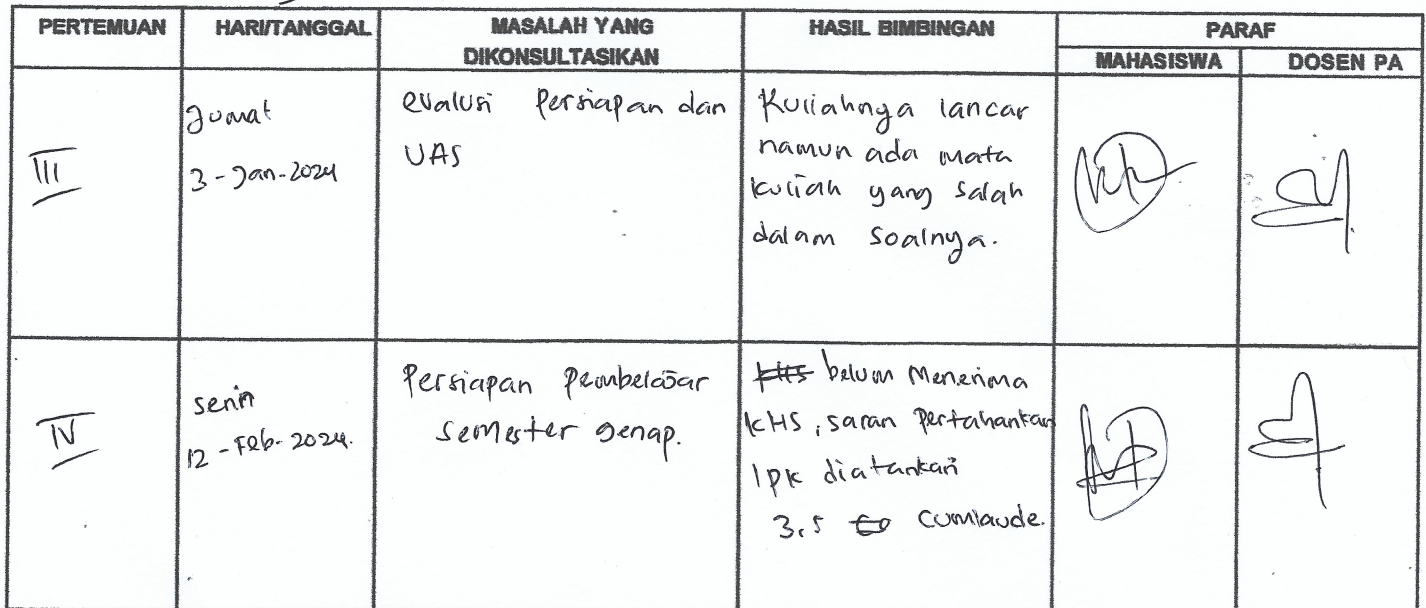 PERTEMUAN HARI/TANGGAL MASALAH YANG DIKONSULTASIKAN HASIL BIMBINGAN PARAF
MAHASISWA DOSEN PA
III
Jumat
3-Jan-2024
evalusi Persiapan dan
UAS
Kuliahnya lancar
namun ada mata
kuliah yang salah
dalam soalnya.
IV
senin
12-Feb-2024.
Persiapan Pembelajar
semester genap.
belum Menerima
KHS, saran Pertahankan
IPK diatankan
3,5 cumlaude.